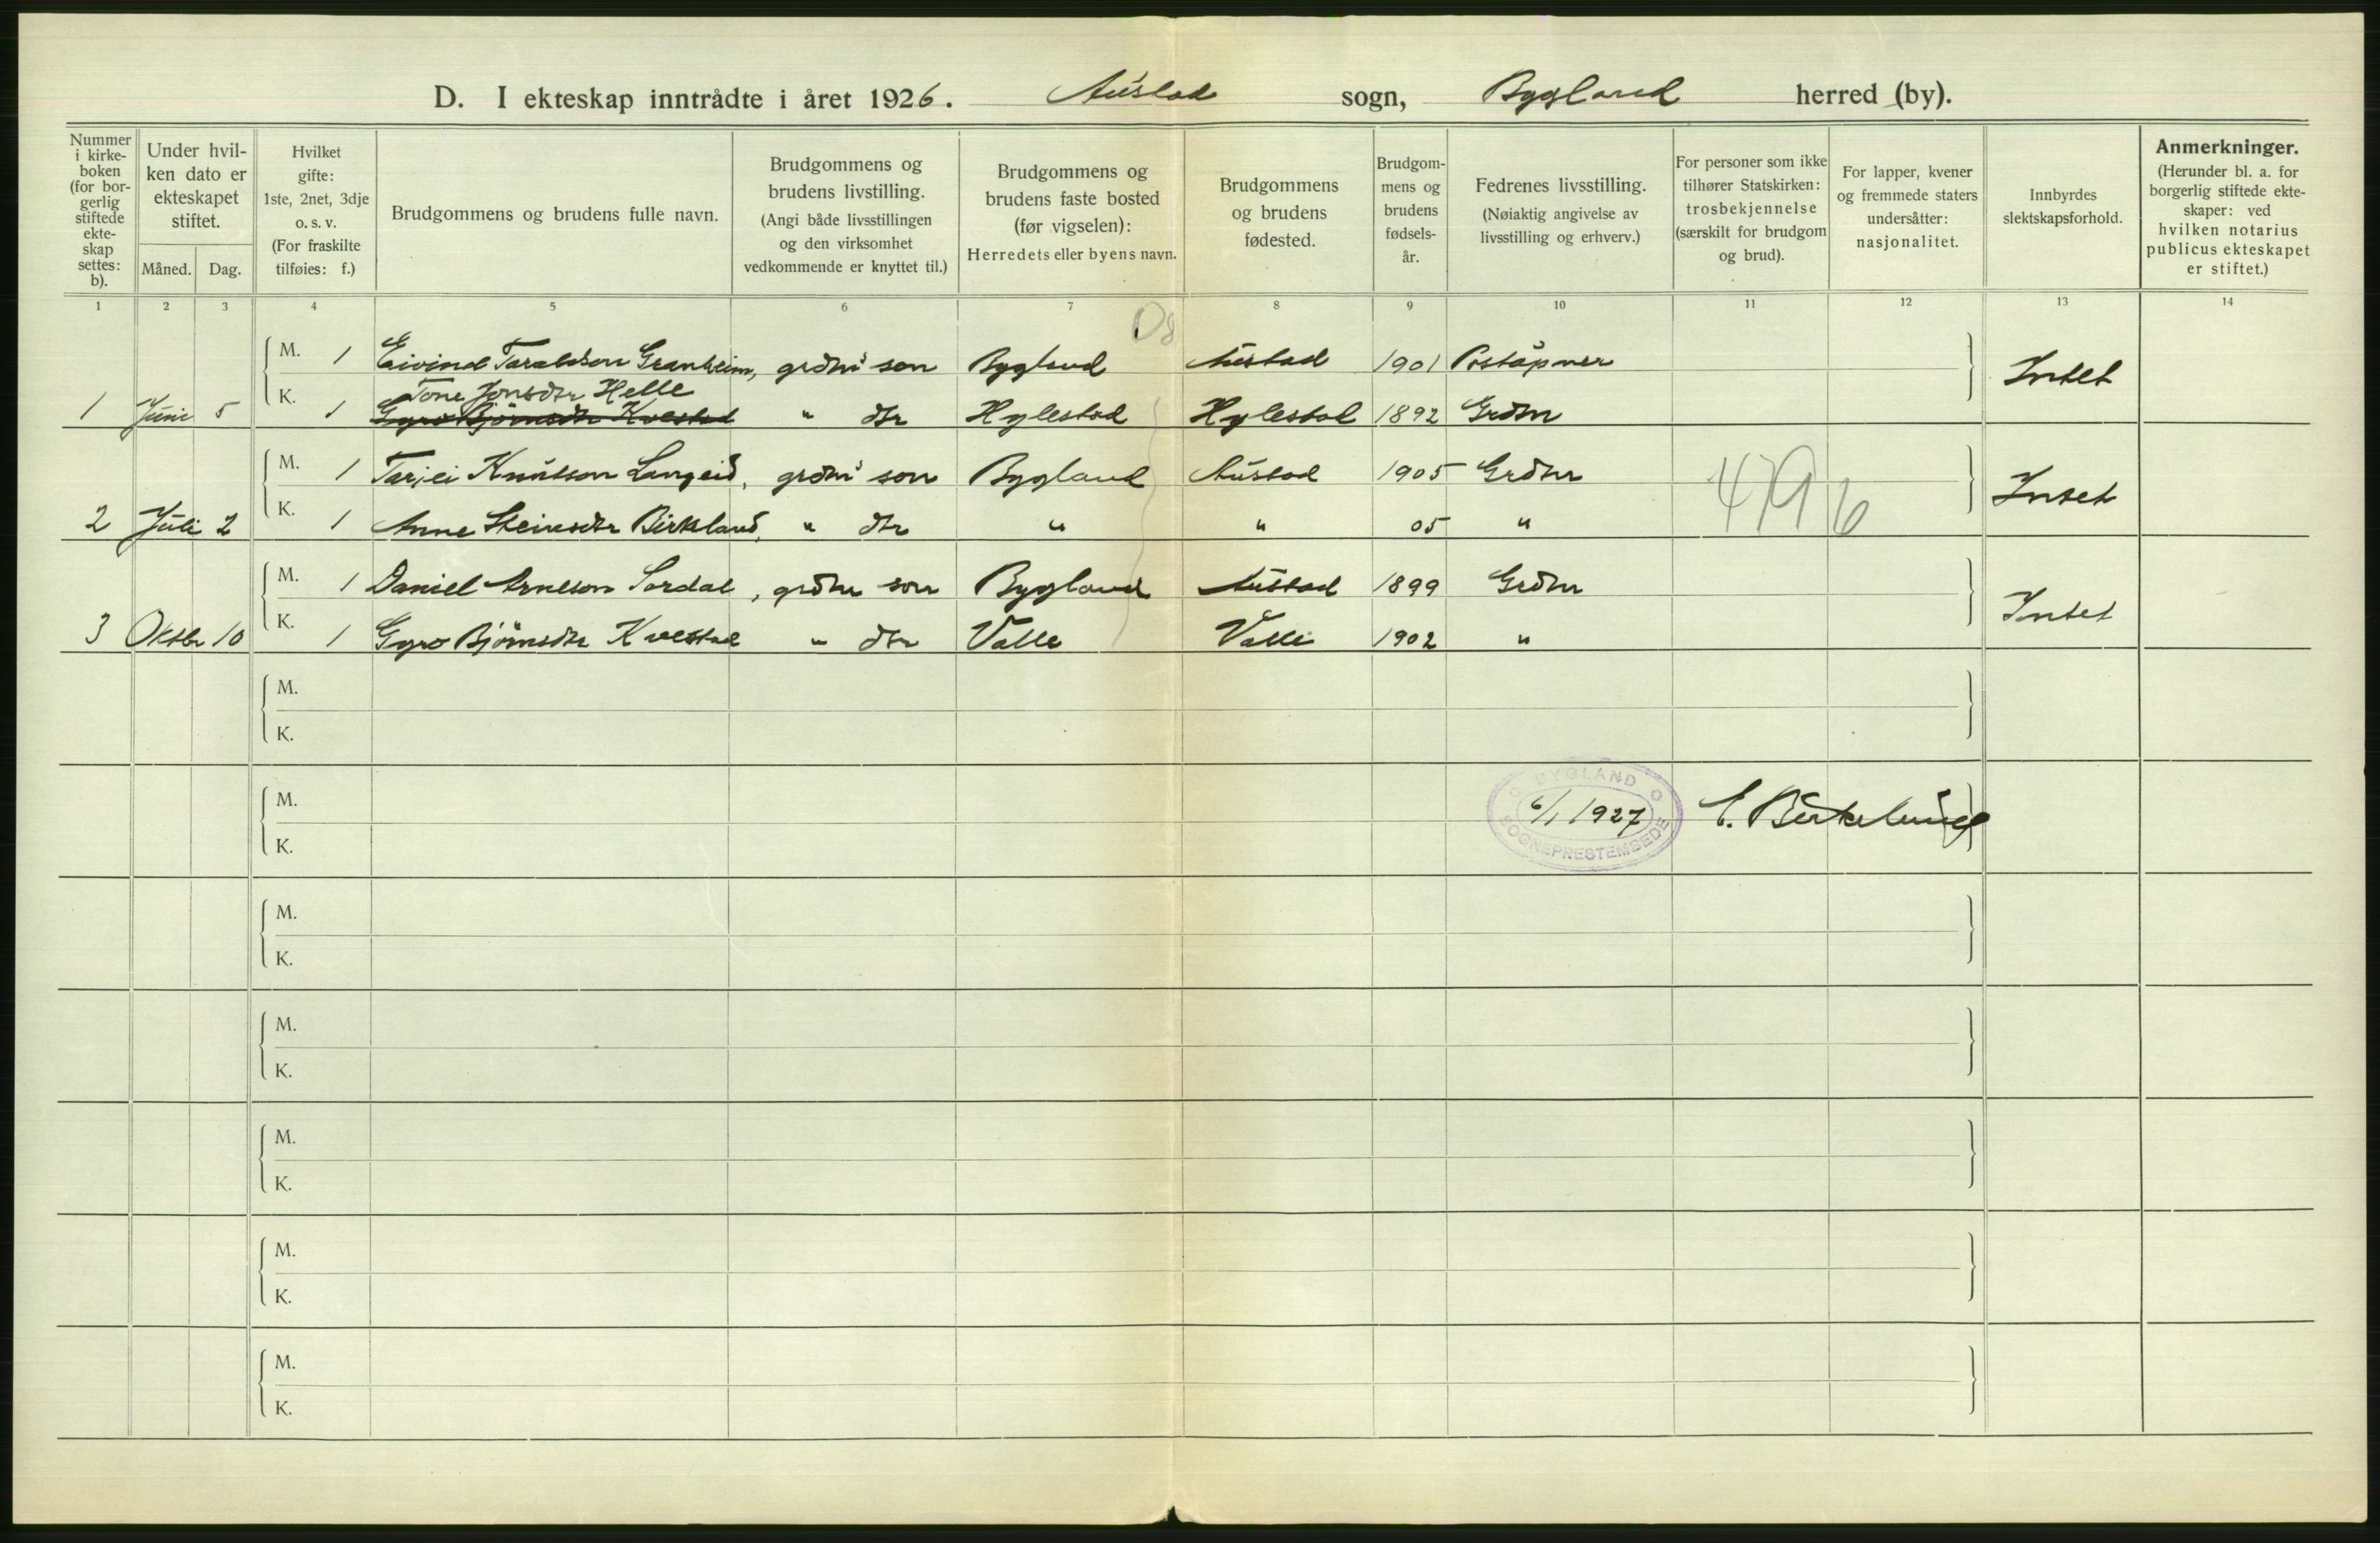 D. I ekteskap inntrådte i året 1926. Austad sogn, Bygland herred (by).
Nummer i kirke-boken (for bor-gerlig stiftede ekte-skap settes: b).
Under hvil-ken dato er ekteskapet stiftet.
Måned. Dag.
Hvilket gifte: 1ste, 2net, 3dje o. s. v. (For fraskilte tilføies: f.)
Brudgommens og brudens fulle navn.
Brudgommens og brudens livstilling. (Angi både livsstillingen og den virksomhet vedkommende er knyttet til.)
Brudgommens og brudens faste bosted (før vigselen): Herredets eller byens navn.
Brudgommens og brudens fødested.
Brudgom-mens og brudens fødsels-år.
Fedrenes livsstilling. (Nøiaktig angivelse av livsstilling og erhverv.)
For personer som ikke tilhører Statskirken: trosbekjennelse (særskilt for brudgom og brud).
For lapper, kvener og fremmede staters undersåtter: nasjonalitet.
Innbyrdes slektskapsforhold.
Anmerkninger. (Herunder bl. a. for borgerlig stiftede ekte-skaper: ved hvilken notarius publicus ekteskapet er stiftet.)
1 2 3 4 5 6 7 8 9 10 11 12 13 14
M. 1 Eivind Taraldson Granheim, grdm' son Bygland Austad 1901 Poståpner
Intet
K. Tone Jonsdtr Helle
1 Juni 5 1 Gyro Björnsdtr Kvestad " dtr Hylestad Hylestad 1892 Grdbr
M. 1 Tarjei Knutson Langeid, grdm' son Bygland Austad 1905 Grdbr
4796
Intet
K.
2 Juli 2 1 Anne Steinsdtr Birkland, " dtr " " 05 "
M. 1 Daniel Arneson Sordal, grdbr son Bygland Austad 1899 Grdbr
Intet
K.
3 Oktbr 10 1 Gyro Björnsdtr Kvestad " dtr Valle Valle 1902 "
M.
K.
BYGLAND
M. 6/1 1927 E. Birkelund
SOGNEPRESTEMBEDE
K.
M.
K.
M.
K.
M.
K.
M.
K.
M.
K.